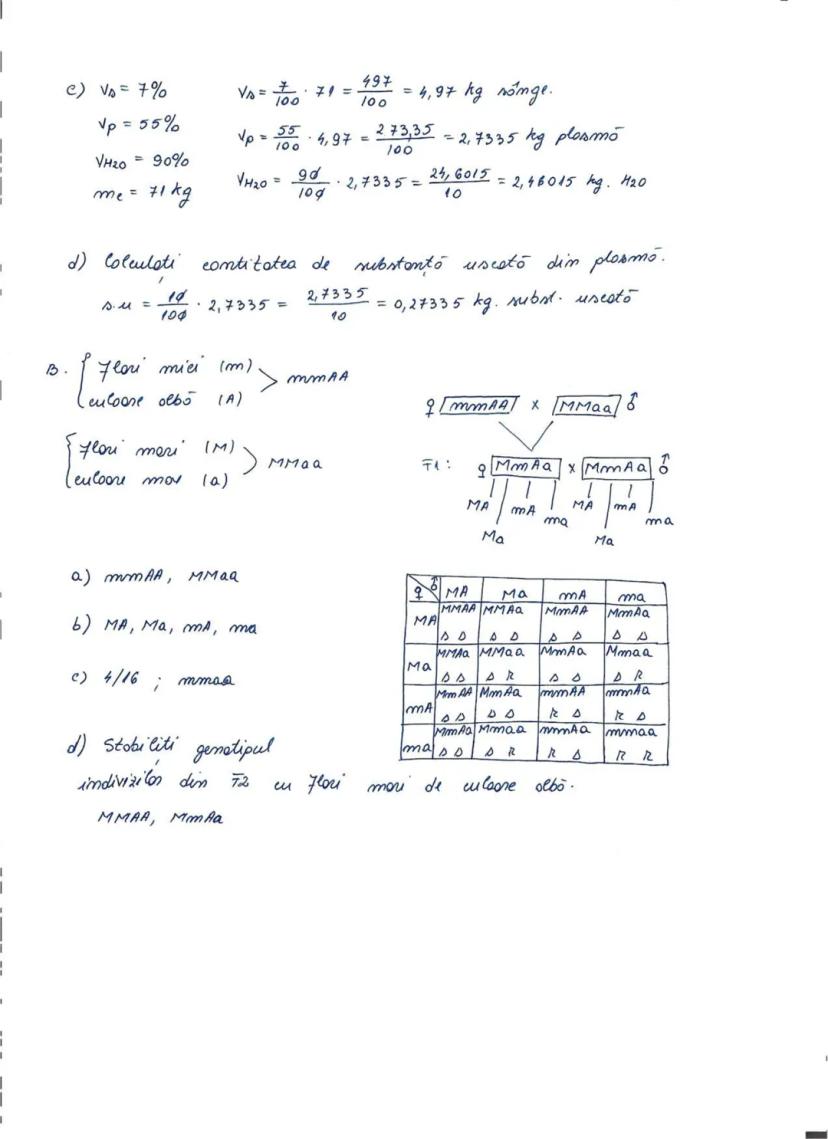 c) Vs = 7%    Vs = 7/100 · 71 = 497/100 = 4,97 kg sânge.
Vp = 55%    Vp = 55/100 · 4,97 = 273,35/100 = 2,7335 kg plasmă
VH2O = 90%    VH2O = 90/100 · 2,7335 = 24,6015/10 = 2,46015 kg. H2O
mc = 71 kg
d) Calculați cantitatea de substanță uscată din plasmă.
s.u = 10/100 · 2,7335 = 2,7335/10 = 0,27335 kg. subst. uscată
B. { Flori mici (m) > mmAA
culoare albă (A)
♀ mmAA x MMaa ♂
{ Flori mari (M) > MMaa
culoare mov (a)
F1: ♀ MmAa x MmAa ♂
MA mA ma MA mA ma
Ma Ma
a) mmAA, MMaa
b) MA, Ma, mA, ma
c) 4/16 ; mmaa
♀ ♂ MA Ma mA ma
MA MMAA MMAa MmAA MmAa
D D D D D D D D
Ma MMAa MMaa MmAa Mmaa
D D D R D D D R
mA MmAA MmAa mmAA mmAa
D D D D R D R D
ma MmAa Mmaa mmAa mmaa
D D D R R D R R
d) Stabiliți genotipul
indivizilor din F2 cu flori mari de culoare albă.
MMAA, MmAa